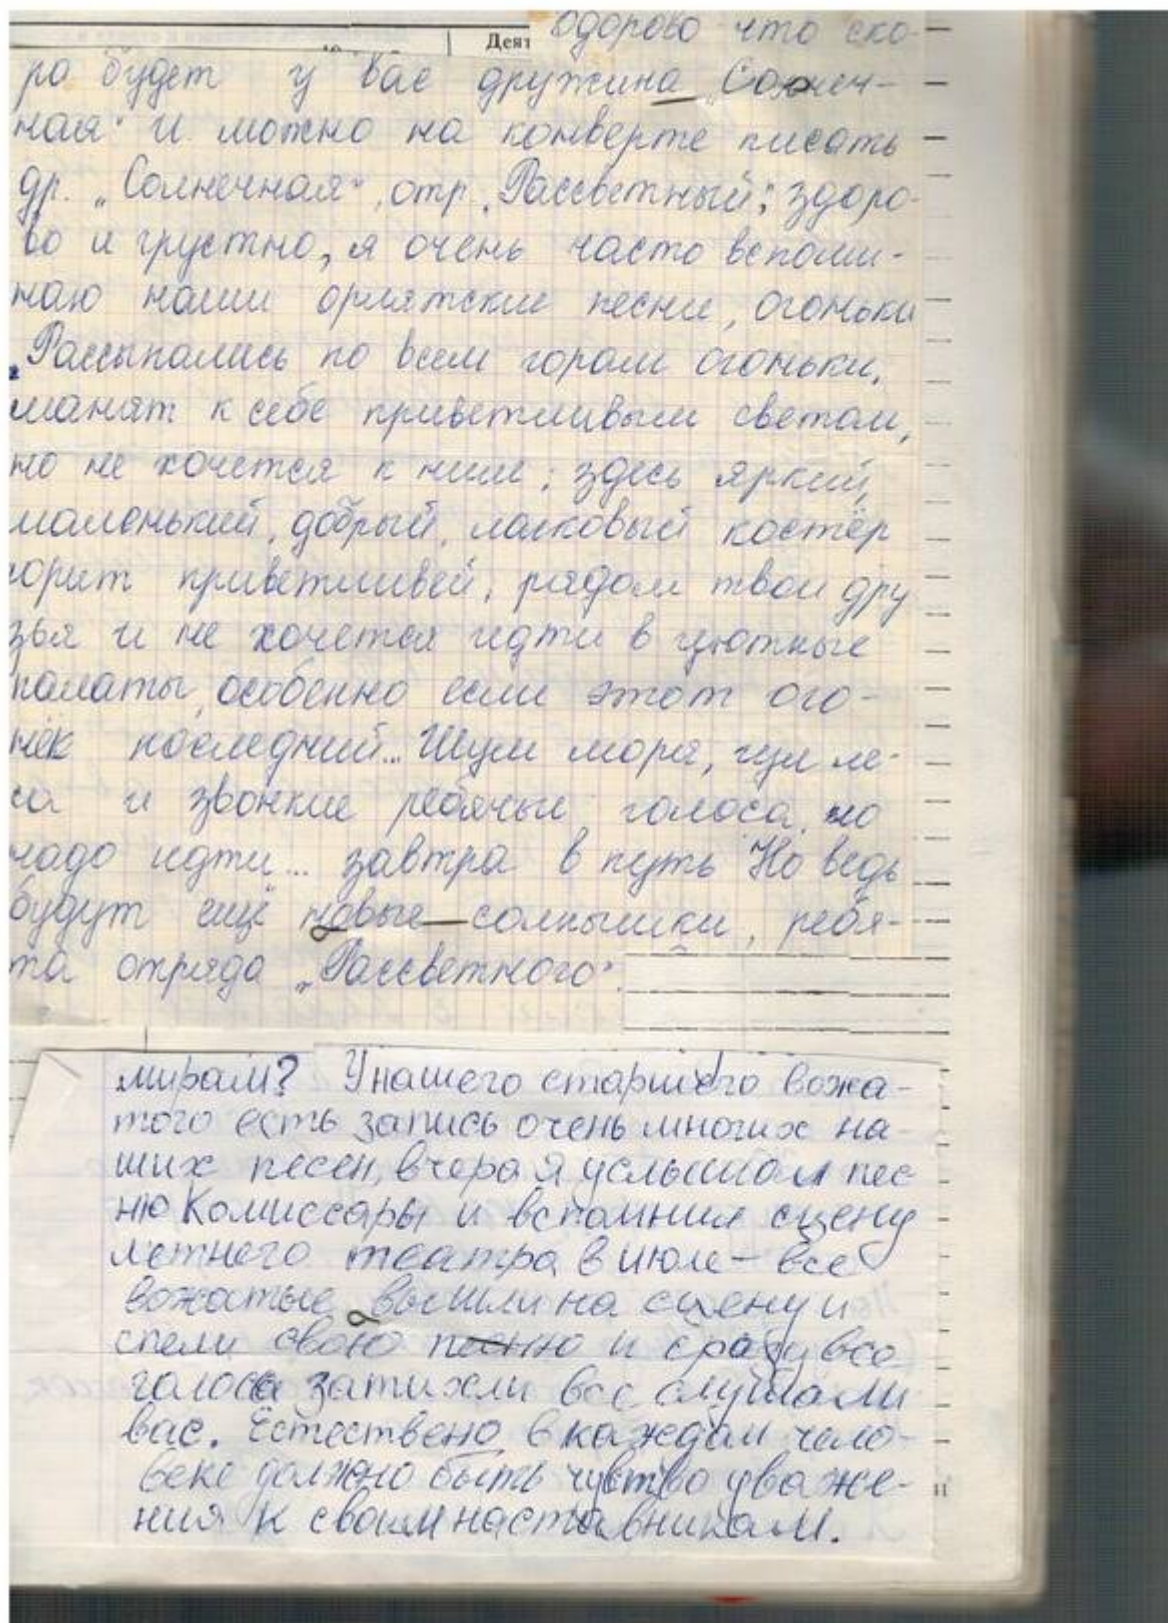 Деят
здорово что ско-
ро будет у вас дружина „Солнеч-
ная“ и можно на конверте писать
др. „Солнечная“, отр. „Рассветный“; здоро-
во и грустно, я очень часто вспоми-
наю наши орлятские песни, огоньки
„Рассыпались по всем горам огоньки,
манят к себе приветливым светом,
но не хочется к ним; здесь яркий,
маленький, добрый, ласковый костёр
горит приветливей, рядом твои дру
зья и не хочется идти в уютные
палаты, особенно если этот ого-
нёк последний... Шум моря, гул ле-
са и звонкие ребячьи голоса, но
надо идти... завтра в путь Но ведь
будут ещё новые солнышки, ребя-
та отряда „Рассветного“.
мирам? У нашего старшего вожа-
того есть запись очень многих на-
ших песен, вчера я услышал пес
ню Комиссары и вспомнил сцену
летнего театра в июле - все
вожатые вышли на сцену и
спели свою песню и сразу все
голоса затихли все слушали
вас. Естествено в каждом чело-
веке должно быть чувтво уваже-
ния к своим наставникам.